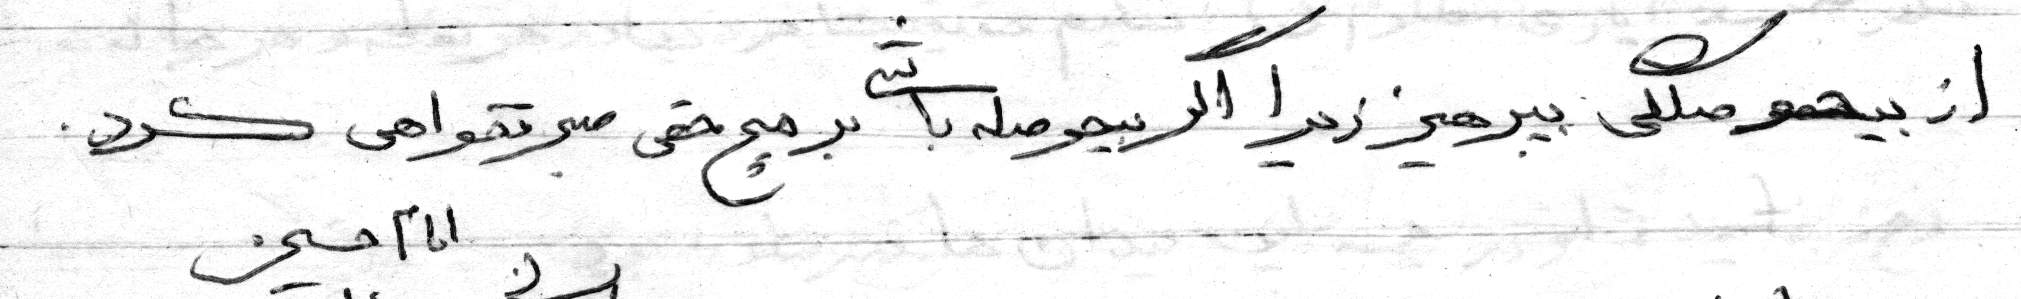 از بیحوصلگی بپرهیز زیرا اگر بیحوصله باشی بر هیچ حقی صبر نخواهی کرد.
امام حسین